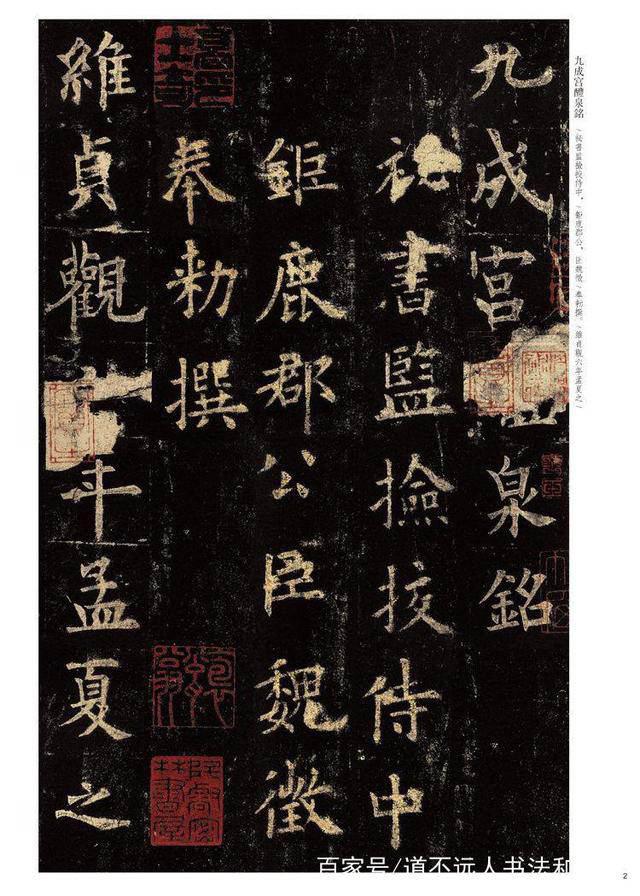 九成宮醴泉銘
秘書監撿挍侍中
鉅鹿郡公臣魏徵
奉勑撰
維貞觀六年孟夏之
九成宮醴泉銘 / 秘書監撿挍侍中，/ 鉅鹿郡公、臣魏徵 / 奉勑撰。/ 維貞觀六年孟夏之 /
百家号/道不远人书法和
2